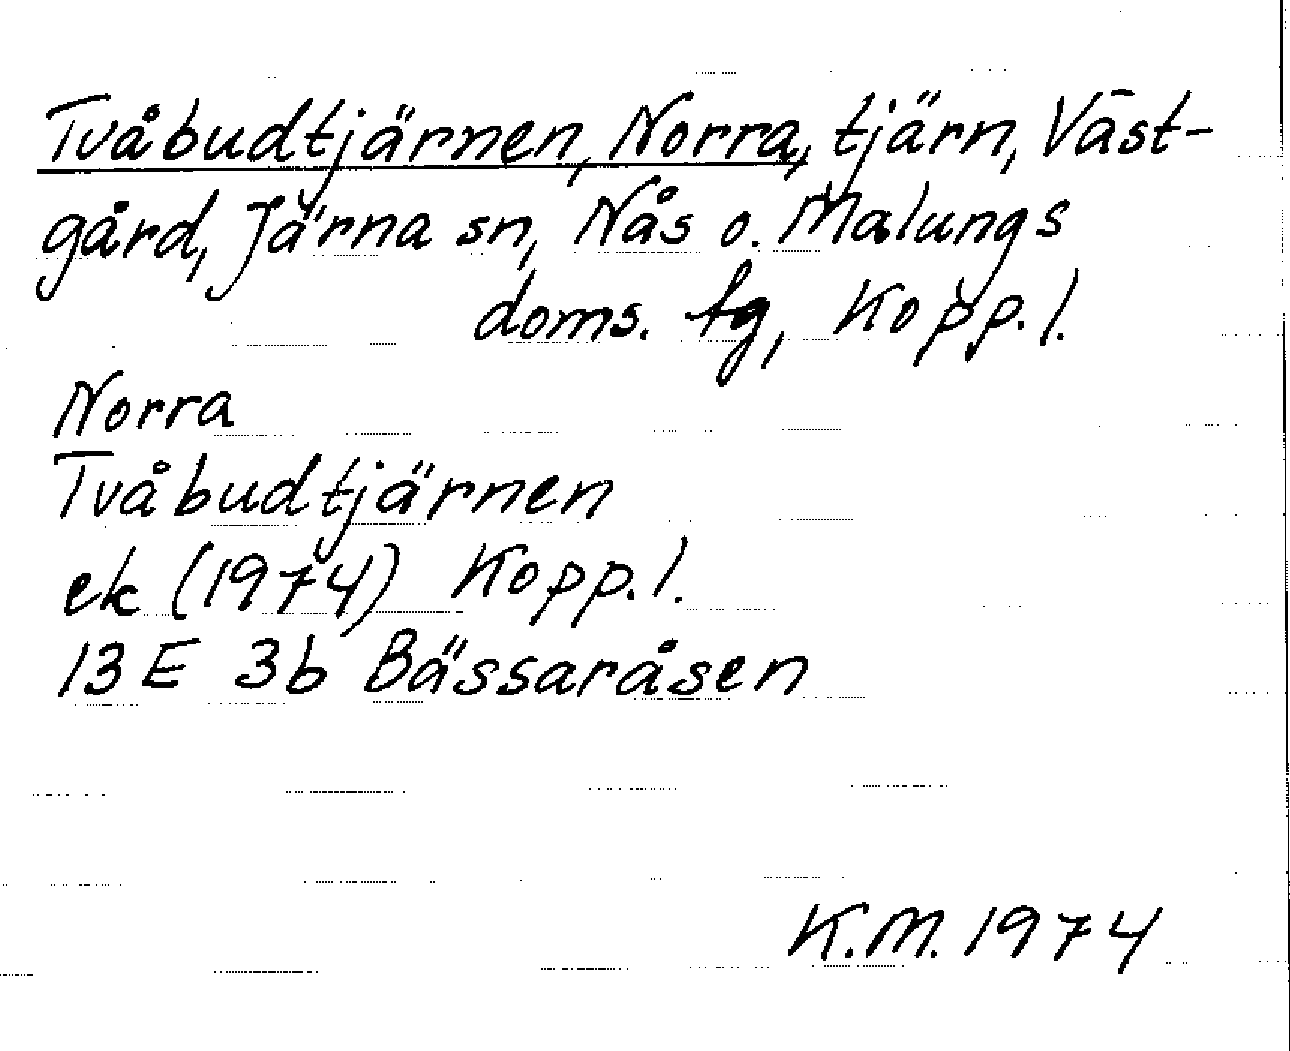 Tvåbudtjärnen, Norra, tjärn, Väst-
gård, Järna sn, Nås o. Malungs
doms. fg, Kopp. l.
Norra
Tvåbudtjärnen
ek (1974) Kopp. l.
13 E 3b Bässaråsen
K.M. 1974